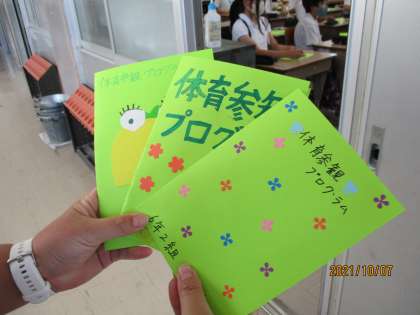 体育参観プログラム
体育参観
プログラム
体育参観
プログラム
6年2組
2021/10/07